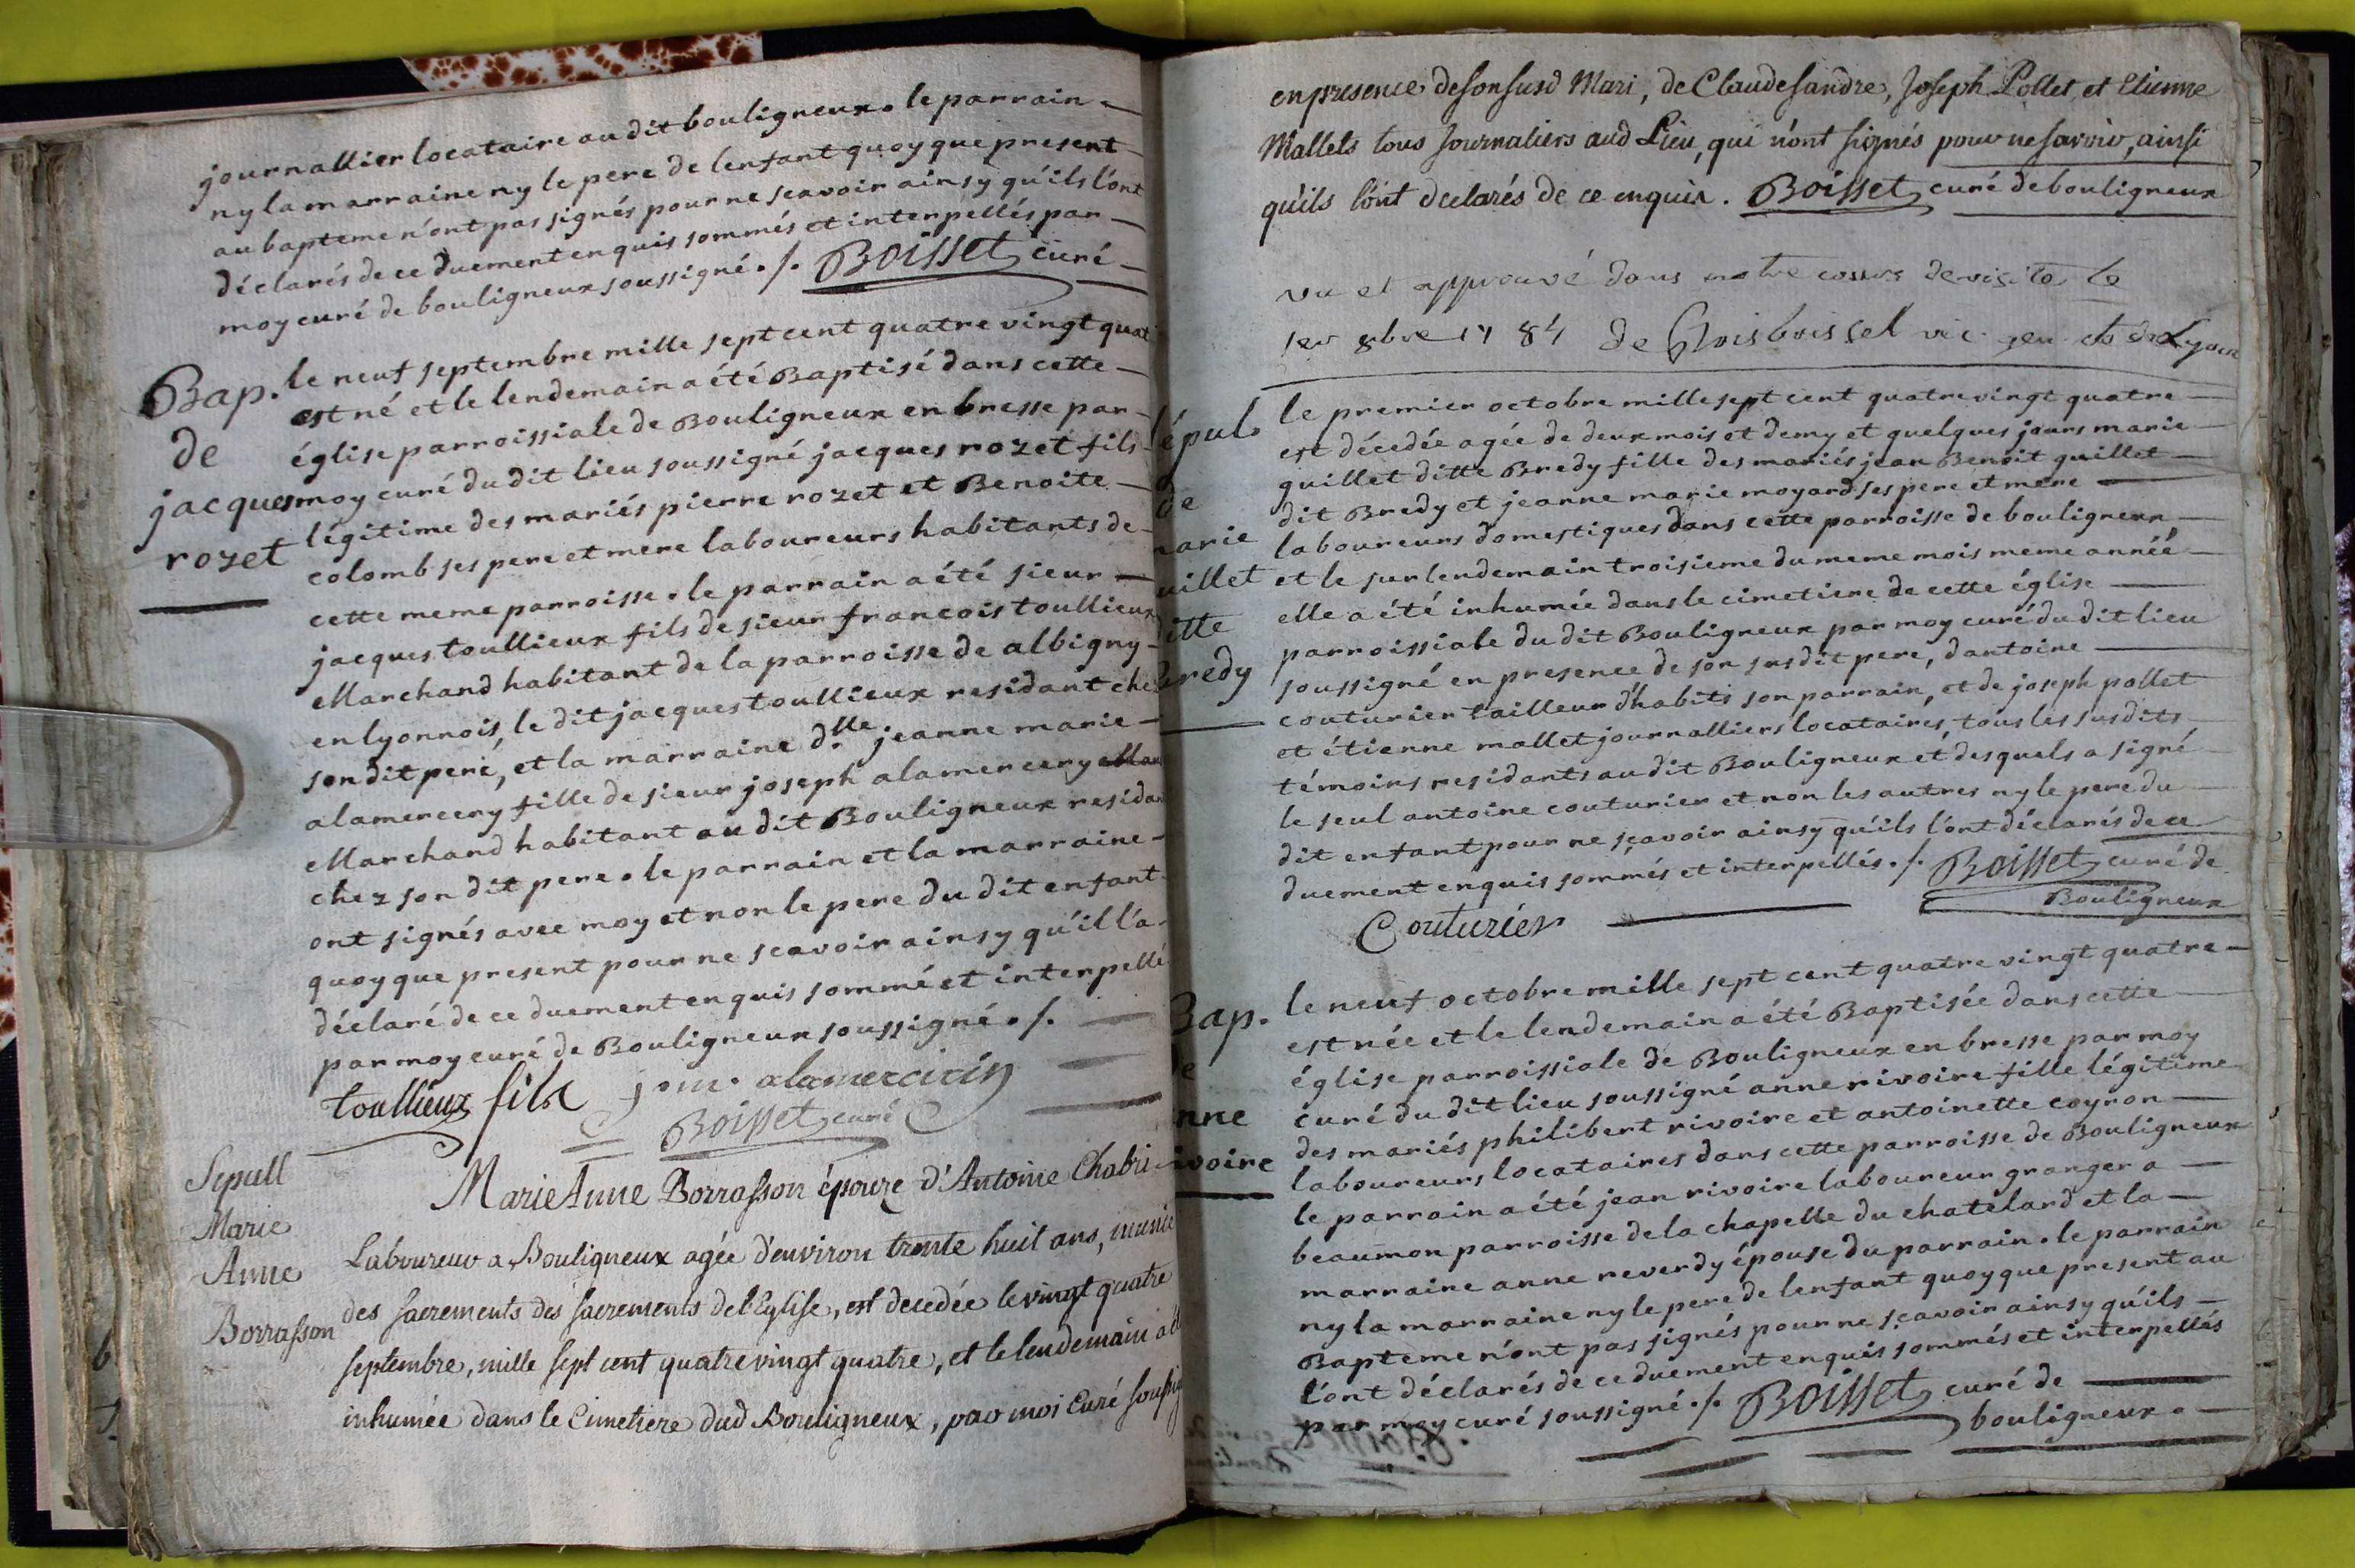 journallier locataire au dit bouligneux. le parrain
ny la marraine ny le pere de lenfant quoy que present
au bapteme n'ont pas signés pour ne scavoir ainsy qu'ils l'ont
déclarés de ce duement enquis sommés et interpellés par
moy curé de bouligneux soussigné ./. Boisset curé
Bap.
de
jacques
rozet
le neuf septembre mille sept cent quatre vingt quat
est né et le lendemain a été Baptisé dans cette
église parroissiale de Bouligneux en bresse par
moy curé du dit lieu soussigné jacques rozet fils
légitime des mariés pierre rozet et Benoite
colomb ses pere et mere laboureurs habitants de
cette meme parroisse. le parrain a été sieur
jacques toullieux fils de sieur francois toullieux
Marchand habitant de la parroisse de albigny
en lyonnois, le dit jacques toullieux residant che
son dit pere, et la marraine d.lle jeanne marie
alamercery fille de sieur joseph alamercery Mar
Marchand habitant au dit Bouligneux residan
chez son dit pere. le parrain et la marraine
ont signés avec moy et non le pere du dit enfant
quoy que present pour ne scavoir ainsy qu'il l'a
déclaré de ce duement enquis sommé et interpellé
par moy curé de Bouligneux soussigné ./.
toullieux fils j m. alamercirÿ
Boisset curé
Sepull
Marie
Anne
Borrasson
Marie Anne Borrasson épouze d'Antoine Chabri
Laboureur a Bouligneux agée d'environ trente huit ans, munie
des sacrements des sacrements de l'Eglise, est decedée le vingt quatre
septembre, mille sept cent quatre vingt quatre, et le lendemain a é
inhumée dans le Cimetiere dud Bouligneux, par moi Curé soussig
en presence de son susd Mari, de Claude Sandre, Joseph Pollet et Etienne
Mallets tous Journaliers aud Lieu, qui n'ont signés pour ne savoir, ainsi
qu'ils l'ont declarés de ce enquis. Boisset curé de bouligneux
vu et approuvé dans notre cours de visite le
1er 8bre 1784 de Grisboissel vic. gen. de Lyon
épul.
de
marie
uillet
ditte
Bredy
le premier octobre mille sept cent quatre vingt quatre
est décedée agée de deux mois et demy et quelques jours marie
quillet ditte Bredy fille des mariés jean Benoit quillet
dit Bredy et jeanne marie moyard ses pere et mere
laboureurs domestiques dans cette parroisse de bouligneux,
et le surlendemain troisieme du meme mois meme année
elle a été inhumée dans le cimetiere de cette église
parroissiale du dit Bouligneux par moy curé du dit lieu
soussigné en presence de son susdit pere, d'antoine
couturier tailleur d'habits son parrain, et de joseph pollet
et étienne mallet journalliers locataires, tous les susdits
témoins residants au dit Bouligneux et desquels a signé
le seul antoine couturier et non les autres ny le pere du
dit enfant pour ne scavoir ainsy qu'ils l'ont déclarés de ce
duement enquis sommés et interpellés ./. Boisset curé de
Bouligneux
Couturier
Bap.
de
nne
ivoire
le neuf octobre mille sept cent quatre vingt quatre
est née et le lendemain a été Baptisée dans cette
église parroissiale de Bouligneux en bresse par moy
curé du dit lieu soussigné anne rivoire fille légitime
des mariés philibert rivoire et antoinette coyron
laboureurs locataires dans cette parroisse de Bouligneux
le parrain a été jean rivoire laboureur granger a
beaumon parroisse de la chapelle du chatelard et la
marraine anne reverdy épouse du parrain. le parrain
ny la marraine ny le pere de lenfant quoy que present au
Bapteme n'ont pas signés pour ne scavoir ainsy qu'ils
l'ont déclarés de ce duement enquis sommés et interpellés
par moy curé soussigné ./. Boisset curé de
bouligneux.